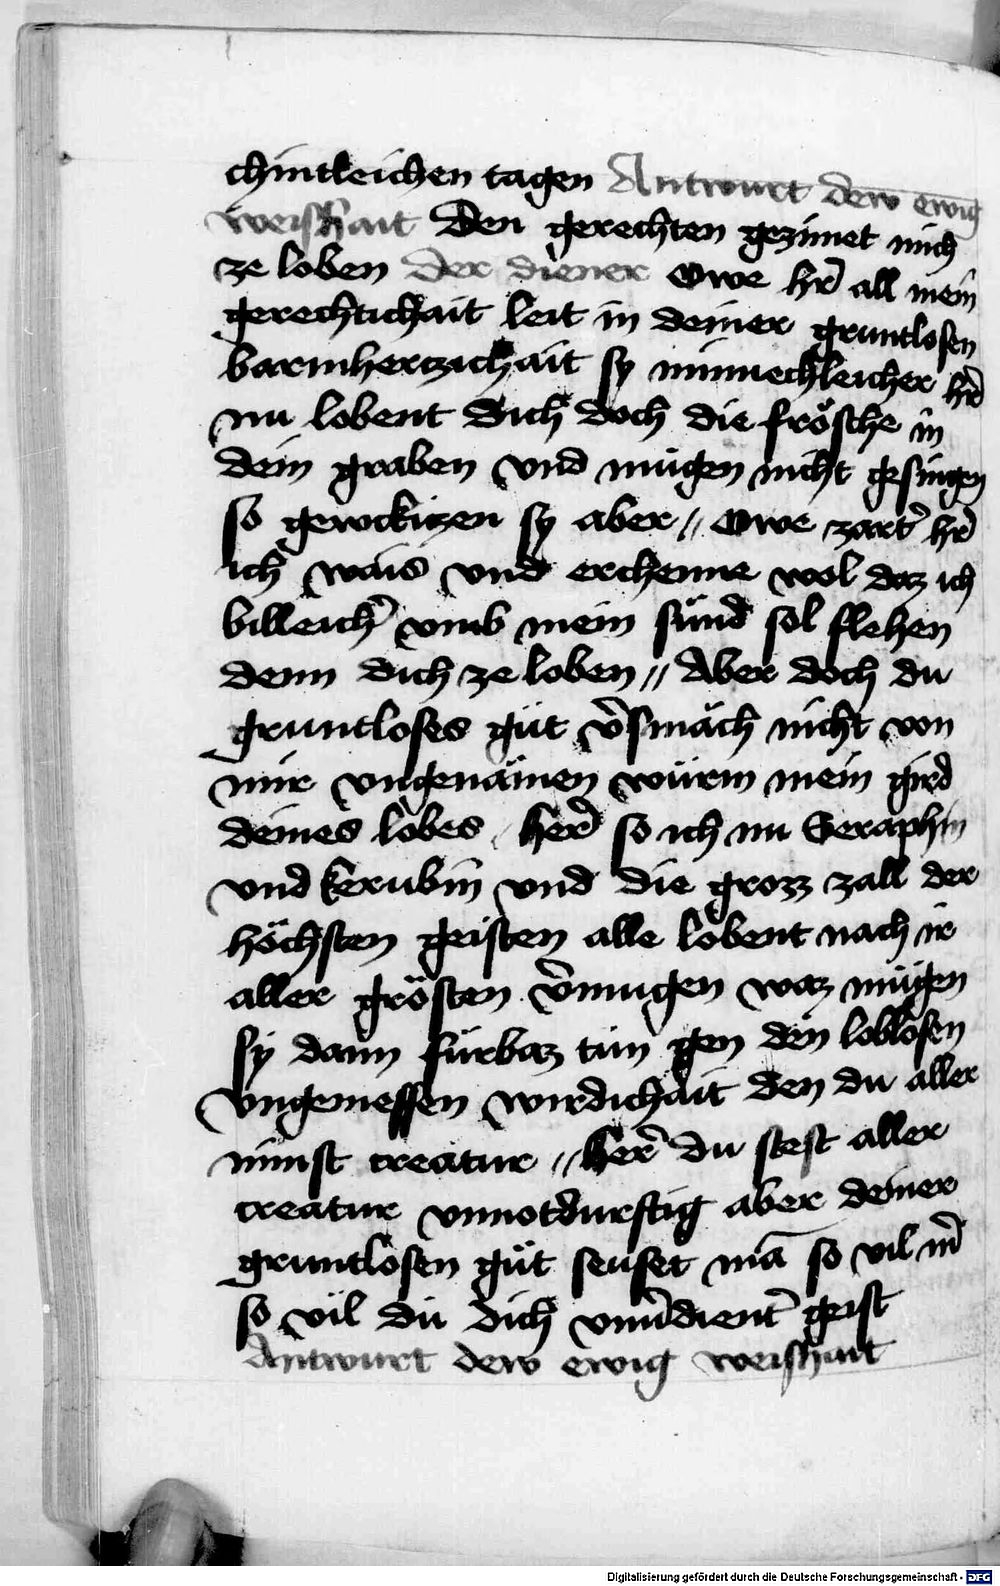 chintleichen tagen Antwurt dew ewig
weishait Den gerechten gezimet mich
ze loben Der diener Owe hr̄ all mein
gerechtichait leit in deiner gruntlosen
barmherczichait sy minnechleicher hr̄
nu lobent dich doch die frösche in
dem graben vnd mügen nicht gesingen
so gewckitzen sy aber // Owe zart̄ hr̄
ich wais vnd erchenne wol daz ich
billeich̄ vmb mein sünd sol flehen
denn dich ze loben // Aber doch du
gruntloses güt v̄smäch nicht von
mir vngenämen würm mein gird
deines lobes / her̄ so ich nu Seraphin
vnd kerubin vnd die grozz zall der
höchsten geisten alle lobent nach ir
aller grösten v̄mugen waz mügen
sy dann fürbaz tün gen den loblösen
vngemessen wirdichait den du aller
minst creatur // her̄ du stest aller
creatur vnnotdurftig aber deiner
gruntlosen güt seufet mā so vil m̄
so vil dü dich vnv̄dient̄ geist
Antwurt dew ewig weishait
Digitalisierung gefördert durch die Deutsche Forschungsgemeinschaft - DFG